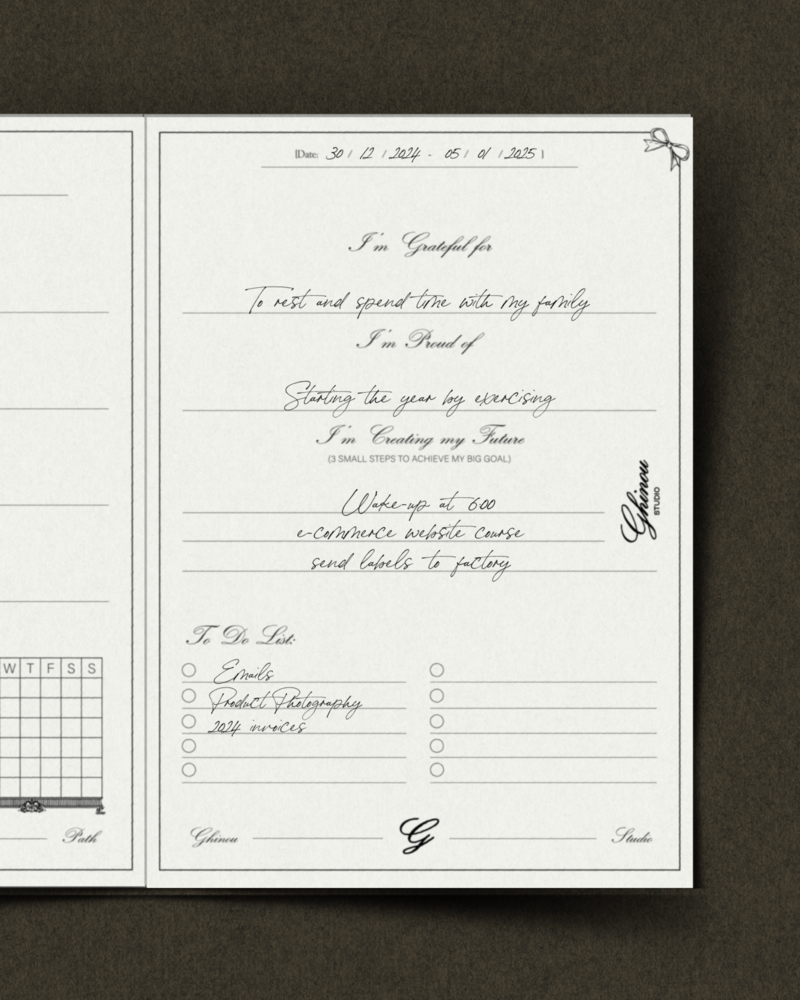 W T F S S
Path
[Date: 30 / 12 / 2024 - 05 / 01 / 2025 ]
I'm Grateful for
To rest and spend time with my family
I'm Proud of
Starting the year by exercising
I'm Creating my Future
(3 SMALL STEPS TO ACHIEVE MY BIG GOAL)
Wake-up at 6:00
e-commerce website course
send labels to factory
Ghinou
STUDIO
To Do List:
Emails
Product Photography
2024 invoices
Ghinou
G
Studio